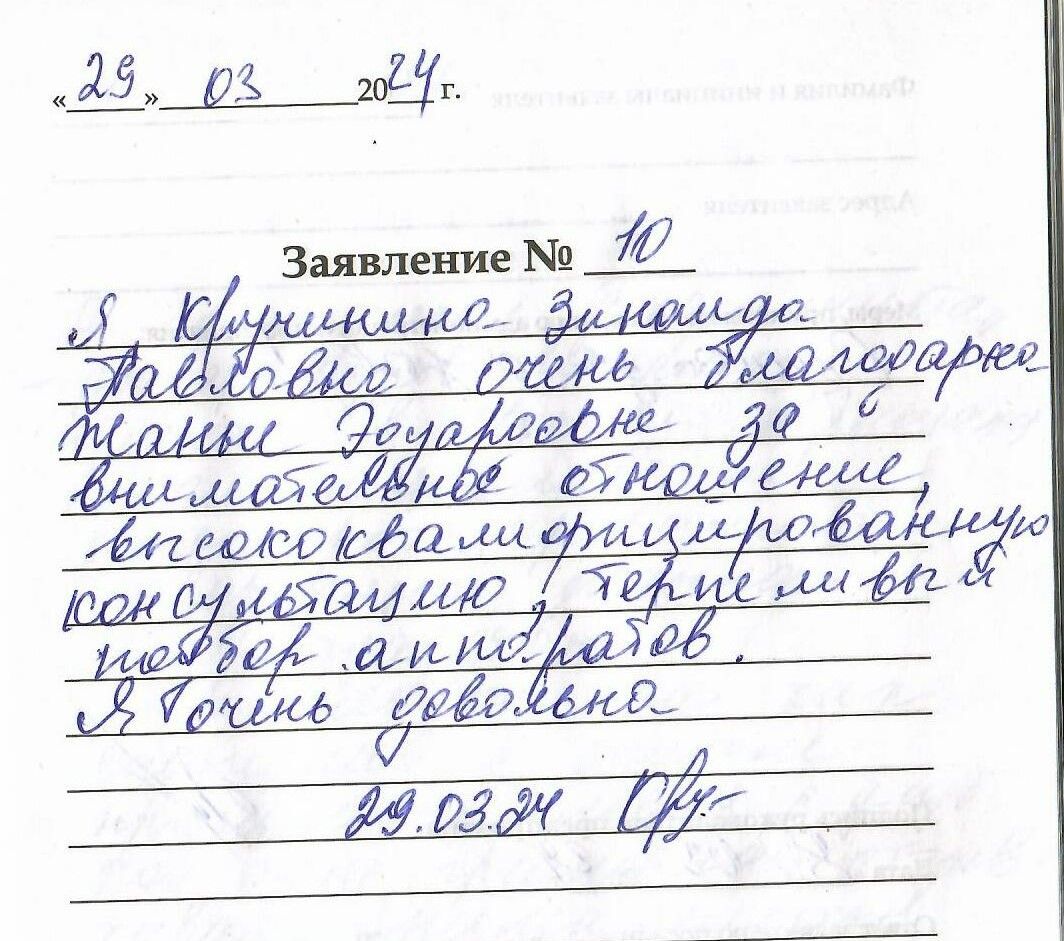 «29» 03 2024 г.
Заявление № 10
Я, Кручинина Зинаида
Павловна очень благодарна
Жанне Эдуардовне за
внимательное отношение,
высококвалифицированную
консультацию, терпеливый
подбор аппаратов.
Я очень довольна
29.03.24 Кру-